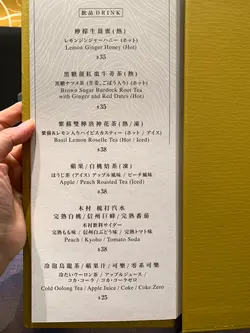 飲品 DRINK
檸檬生薑蜜(熱)
レモンジンジャーハニー (ホット)
Lemon Ginger Honey (Hot)
$35
黑糖甜紅棗牛蒡茶(熱)
黒糖ナツメ茶 (生姜、ごぼう入り) (ホット)
Brown Sugar Burdock Root Tea
with Ginger and Red Dates (Hot)
$35
紫蘇雙檸洛神花茶(熱/凍)
紫蘇&レモン入りハイビスカスティー (ホット / アイス)
Basil Lemon Roselle Tea (Hot / Iced)
$38
蘋果/白桃焙茶(凍)
ほうじ茶 (アイス) アップル風味 / ピーチ風味
Apple / Peach Roasted Tea (Iced)
$38
木村 梳打汽水
完熟白桃/信州巨峰/完熟番茄
木村飲料サイダー
完熟もも味 / 信州白ぶどう味 / 完熟トマト味
Peach / Kyoho / Tomato Soda
$38
冷泡烏龍茶/蘋果汁/可樂/零系可樂
冷たいウーロン茶 / アップルジュース /
コカ·コーラ / コカ·コーラゼロ
Cold Oolong Tea / Apple Juice / Coke / Coke Zero
$25